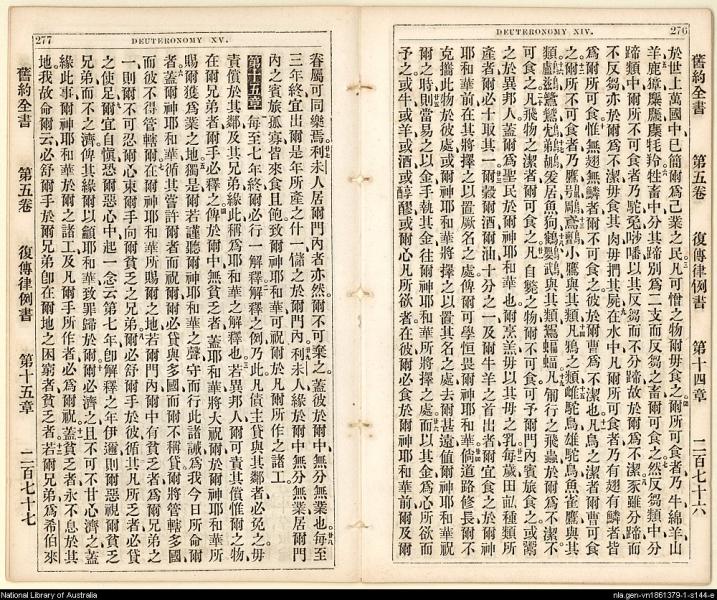 276
DEUTERONOMY XIV.
舊約全書 第五卷 復傳律例書 第十四章 二百七十六
於世上萬國中已簡爾爲己業之民凡可憎之物爾毋食之爾所可食者乃牛綿羊山
羊鹿獐麋麞羚牲畜中分其蹄別爲二支而反芻之畜爾可食之然反芻類中分
蹄類中爾所不可食者乃駝兔因其反芻而不分蹄故於爾爲不潔豕雖分蹄而
不反芻亦於爾爲不潔毋食其肉毋捫其屍在水中凡爾所可食者乃有翅有鱗者皆
爲爾所可食惟無翅無鱗者爾不可食之彼於爾曹爲不潔也凡鳥之潔者爾曹可食
之爾所不可食者乃鷹小鷹與其類凡鴉之類雌駝鳥雄駝鳥魚雀鷹與其
類鷀魚狗鶴鸚武與其類蝙蝠凡匍行之飛蟲於爾爲不潔不
可食之凡飛物之潔者爾可食之凡自斃之物爾不可食之可予爾門內賓旅食之或鬻
之於異邦人蓋爾爲聖民於爾神耶和華也爾烹羔毋以其母之乳每歲田畝種類所
產者爾必十取其一爾穀爾酒爾油十分之一及爾牛羊之首出者爾宜食之於爾神
耶和華前在其將擇之以置厥名之處俾爾可學恒畏爾神耶和華倘道路修長爾不
克攜此物於彼處或爾神耶和華將擇之以置其名之處去爾甚遠値爾神耶和華祝
爾之時則當易之以金手執其金往爾神耶和華所將擇之處而以其金爲心所欲而
予之或牛或羊或酒或醇醪或爾心凡所欲者在彼爾必食於爾神耶和華前爾及爾
277
DEUTERONOMY XV.
眷屬可同樂焉利未人居爾門內者亦然爾不可棄之蓋彼於爾中無分無業也每至
三年終宜出爾是年所產之什一儲之於爾門內利未人緣於爾中無分無業居爾門
內之賓旅孤寡皆來食且飽致爾神耶和華可祝爾於爾凡所作之諸工
第十五章 每至七年終爾必行一解釋解釋之例乃此凡債主貸與其鄰者必免之毋
責償於其鄰及其兄弟緣此稱爲耶和華之解釋也若異邦人爾可責其償惟爾之物
在爾兄弟者爾手必釋之俾於爾中無貧乏者蓋耶和華將大祝爾於爾神耶和華所
賜爾獲爲業之地獨是爾若謹聽爾神耶和華之聲守而行此諸誡爲我今日所命爾
者蓋爾神耶和華循其嘗許爾者而祝爾爾必貸與多國而爾不稱貸爾將管轄多國
而彼不得管轄爾在爾神耶和華所賜爾之地若爾門內爾中有貧乏者爲爾兄弟之
一則爾不可忍爾心束爾手向爾貧乏之兄弟爾必舒爾手於彼循其凡所乏者必貸
之使足爾宜自愼恐爾惡心中起一念云第七年即解釋之年伊邇則爾惡視爾貧乏
兄弟而不之濟俾其緣爾以籲耶和華致罪歸於爾爾必濟之且不可不甘心濟之蓋
緣此事爾神耶和華於爾之諸工及凡爾手所作者必爲爾祝蓋貧乏者永不息於其
地我故命爾云必舒爾手於爾兄弟即在爾地之困窮者貧乏者若爾兄弟爲希伯來
舊約全書 第五卷 復傳律例書 第十五章 二百七十七
National Library of Australia
nla.gen-vn1861379-1-s144-e